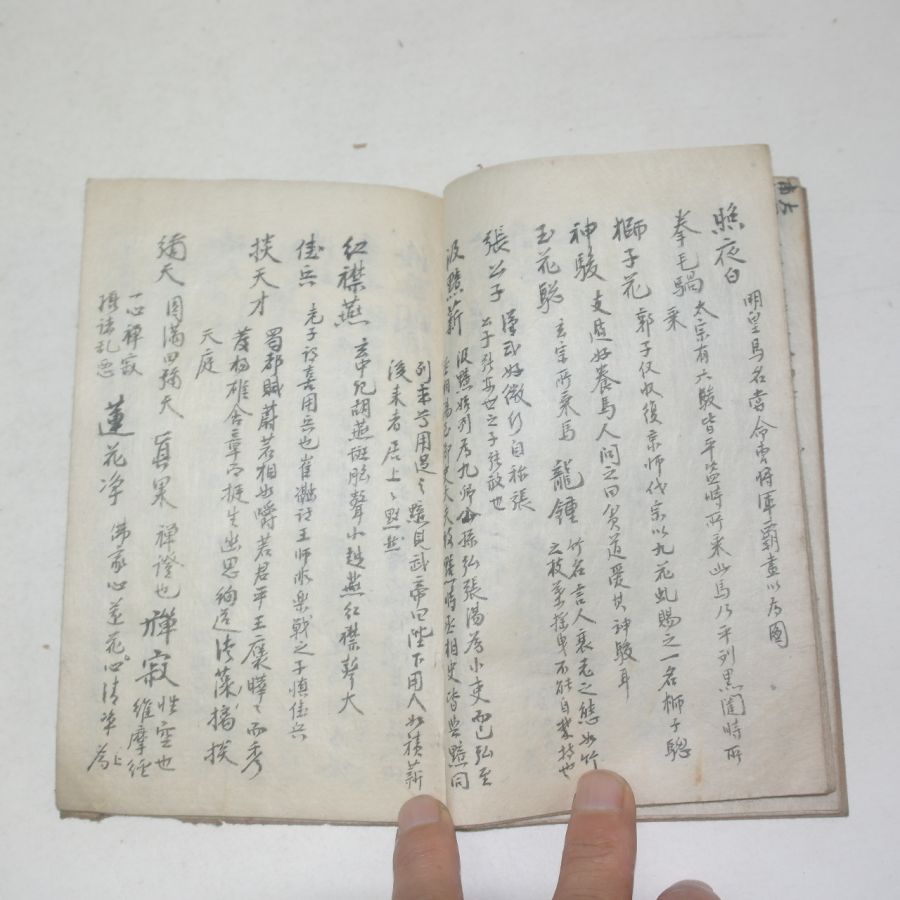 照夜白 明皇馬名當命曹將軍霸畫以爲圖
拳毛騧 太宗有六駿皆平盜時所乘此馬乃平列黑闥時所
乘
獅子花 郭子仪收復京师代宗以九花虬賜之一名獅子驄
神駿 支遁好養馬人问之曰貧道愛其神駿耳
玉花驄 玄宗所乘馬 龍鍾 竹名言人衰老之態如竹
之枝葉搖曳不能自禁持也
張公子 漢武好微行自称張
公子張安世之子張放也
汲黯薪 汲黯始列爲九卿公孫弘張湯爲小吏而已弘至
丞相湯御史大夫故黯時丞相史皆與黯同
列或用過之黯見武帝曰陛下用人如積薪
後来者居上上黙然
紅襟燕 玄中记胡燕斑胸聲小越燕紅襟聲大
佳兵 老子谓喜用兵也崔澈诗王师非樂戰之子慎佳兵
掞天才 蜀都賦蔚若相如皭若君平王褒韡韡而秀
發楊雄含章而挺生幽思绚道德摛藻掞
天庭
彌天 圓滿四彌天 眞果 禅證也 禪寂 性空也
一心禪寂
摄诸乱惡 蓮花净 佛家心蓮花心清净 維摩經
上
爲